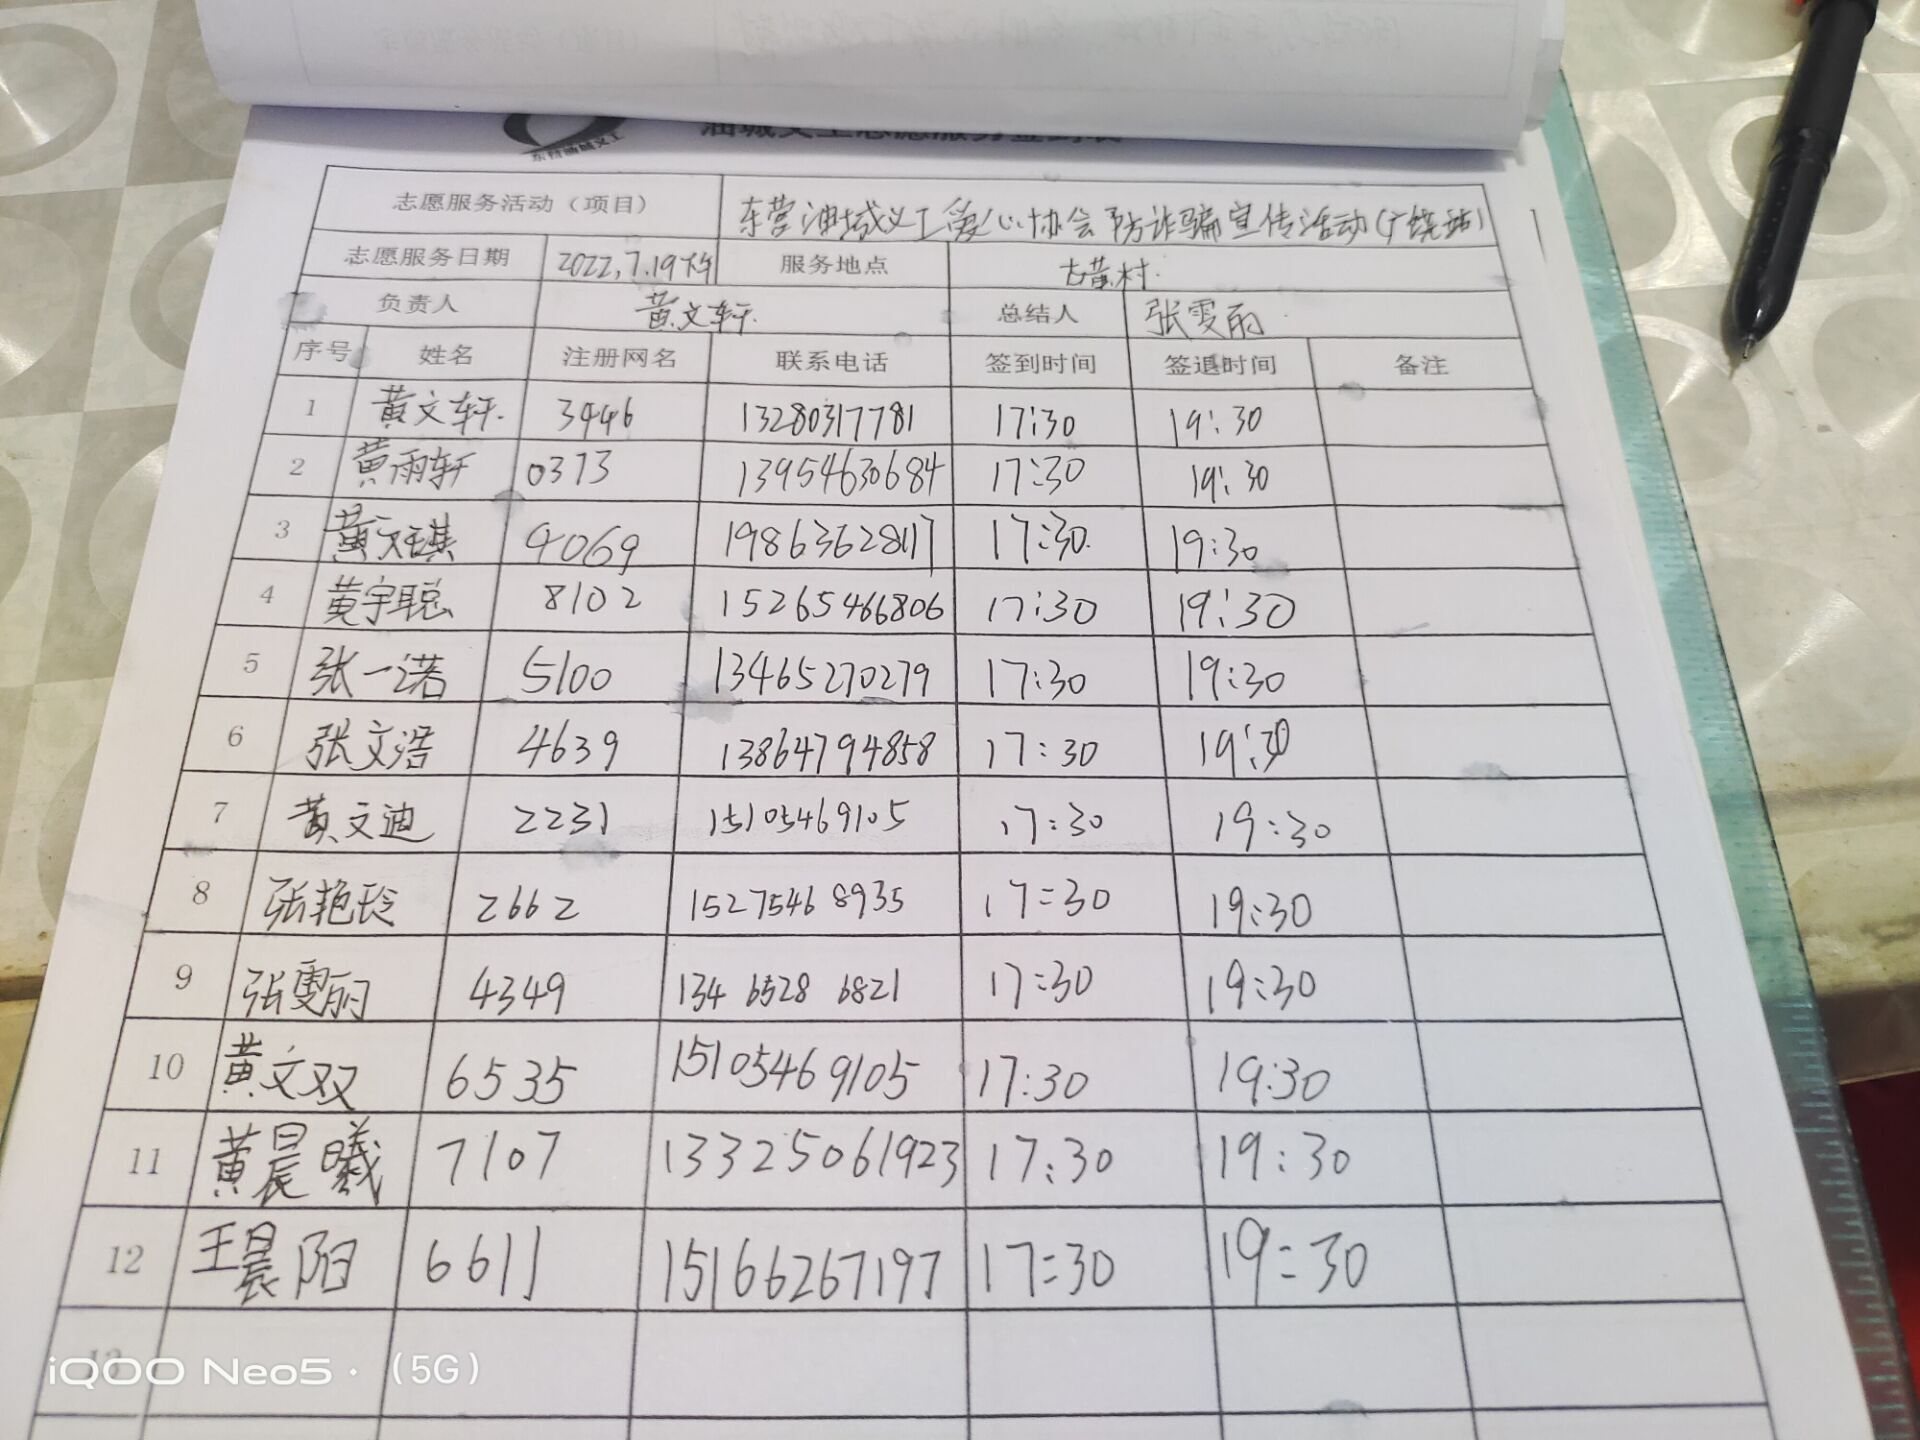 东营油城义工
油城义工志愿服务签到表
志愿服务活动（项目） 东营油城义工爱心协会防诈骗宣传活动(广饶站)
志愿服务日期 2022,7.19下午 服务地点 古黄村.
负责人 黄文轩. 总结人 张雯雨
序号 姓名 注册网名 联系电话 签到时间 签退时间 备注
1 黄文轩. 3446 13280317781 17:30 19:30
2 黄雨轩 0373 13954630684 17:30 19:30
3 黄文琪 9069 19863628117 17:30. 19:30
4 黄宇聪 8102 15265466806 17:30 19:30
5 张一诺 5100 13465270279 17:30 19:30
6 张文浩 4639 13864794858 17:30 19:30
7 黄文迪 2231 15105469105 17:30 19:30
8 张艳玲 2662 15275468935 17:30 19:30
9 张雯雨 4349 134 6528 6821 17:30 19:30
10 黄文双 6535 15105469105 17:30 19:30
11 黄晨曦 7107 13325061923 17:30 19:30
12 王晨阳 6611 15166267197 17:30 19:30
13
iQOO Neo5 · （5G）